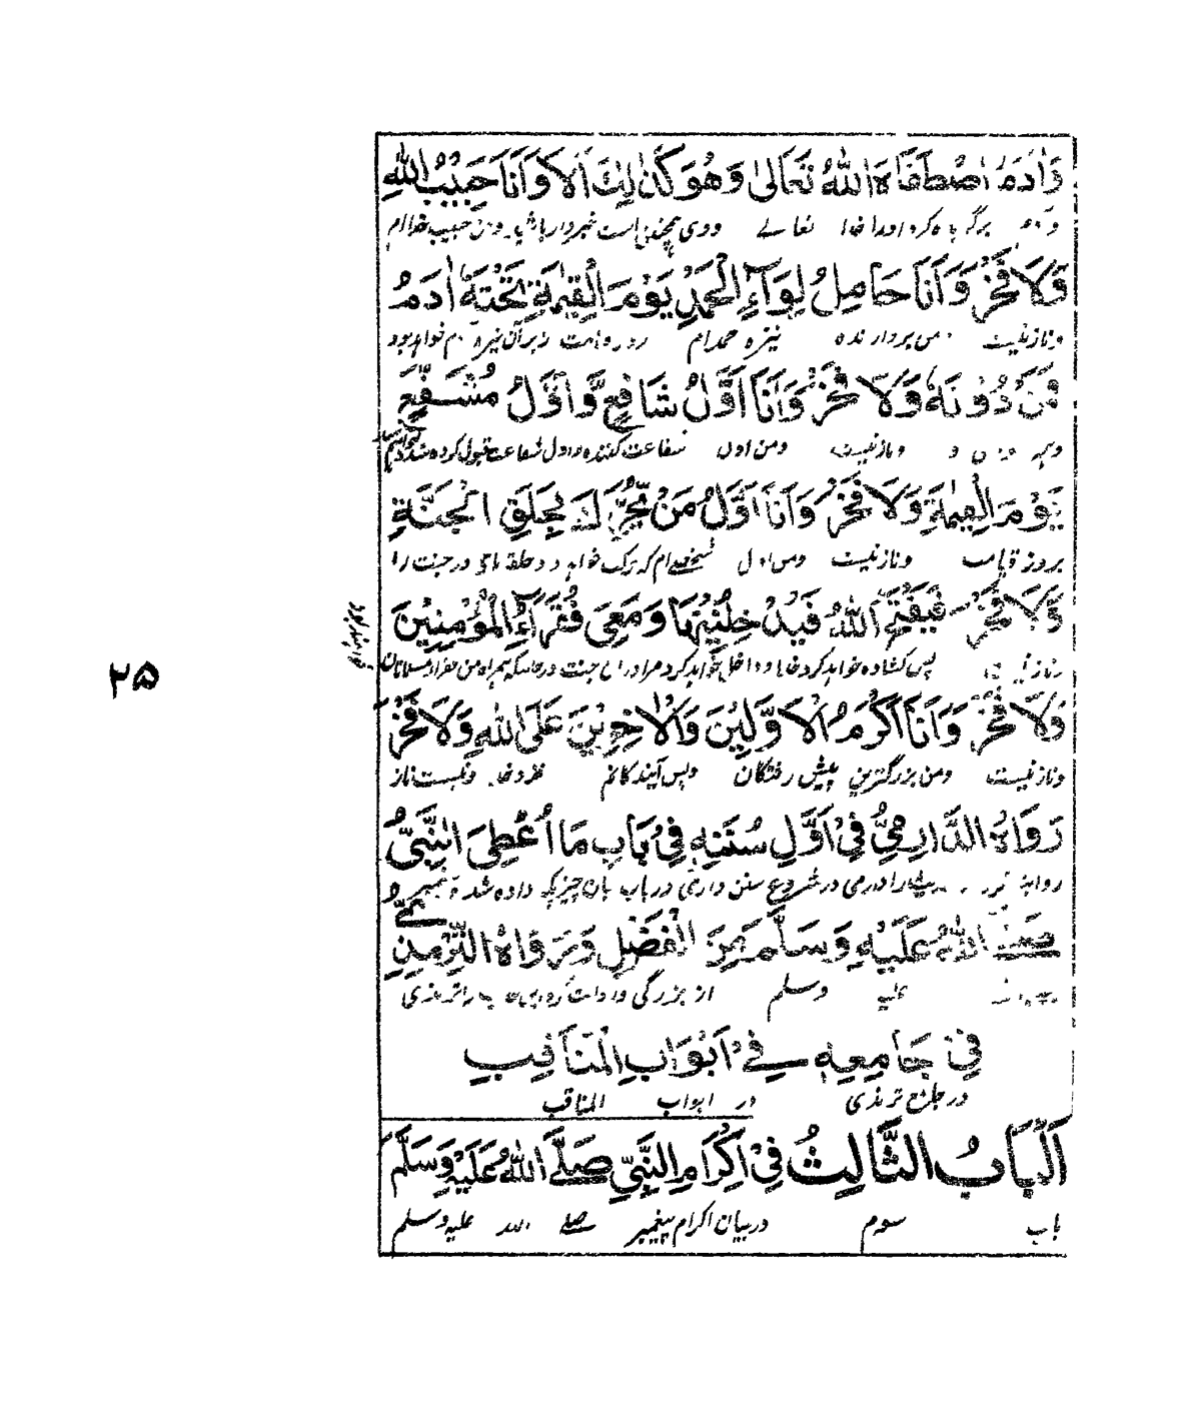 وَاٰدَمُ اصْطَفَاهُ اللّٰهُ تَعَالٰى وَهُوَ كَذٰلِكَ اَلَا وَاَنَا حَبِيْبُ اللّٰهِ
برگزیده کرد اورا خدا تعالے ووی همچنین است خبردار باشید ومن حبیب خدا ام
وَلَا فَخْرَ وَاَنَا حَامِلُ لِوَآءِ الْحَمْدِ يَوْمَ الْقِيٰمَةِ تَحْتَهٗ اٰدَمُ
ونازنیست ومن بردارنده نیزه حمدام روز قیامت زیر آن نیزه آدم خواهد بود
فَمَنْ دُوْنَهٗ وَلَا فَخْرَ وَاَنَا اَوَّلُ شَافِعٍ وَّاَوَّلُ مُشَفَّعٍ
ونازنیست ومن اول شفاعت کننده و اول شفاعت قبول کرده شده
يَوْمَ الْقِيٰمَةِ وَلَا فَخْرَ وَاَنَا اَوَّلُ مَنْ يُّحَرِّكُ بِحَلَقِ الْجَنَّةِ
بروز قیامت ونازنیست ومن اول شخصے ام که حرکت خواهد داد حلقهای در جنت را
وَلَا فَخْرَ فَيَفْتَحُ اللّٰهُ فَيُدْخِلُنِيْهَا وَمَعِىَ فُقَرَآءُ الْمُؤْمِنِيْنَ
ونازنیست پس کشاده خواهد کرد خدا وداخل خواهد کرد مرا درای جنت درحالیکه همراه من فقرا مسلمانان
خواهند بود
۲۵
وَلَا فَخْرَ وَاَنَا اَكْرَمُ الْاَوَّلِيْنَ وَالْاٰخِرِيْنَ عَلَى اللّٰهِ وَلَا فَخْرَ
ونازنیست ومن بزرگترین پیش رفتگان وپس آیندگانم نزد خدا ونیست ناز
رَوَاهُ الدَّارِمِيُّ فِيْ اَوَّلِ سُنَنِهٖ فِيْ بَابِ مَا اُعْطِىَ النَّبِىُّ
دارمی در شروع سنن دارمی در باب بیان چیزیکه داده شده پیغمبر
صَلَّى اللّٰهُ عَلَيْهِ وَسَلَّمَ مِنَ الْفَضْلِ وَرَوَاهُ التِّرْمِذِىُّ
علیه وسلم از بزرگی را ترمذی
فِيْ جَامِعِهٖ فِيْ اَبْوَابِ الْمَنَاقِبِ
در جامع ترمذی در ابواب المناقب
اَلْبَابُ الثَّالِثُ فِيْ اِكْرَامِ النَّبِيِّ صَلَّى اللّٰهُ عَلَيْهِ وَسَلَّمَ
باب سوم دربیان اکرام پیغمبر صلے الله علیه وسلم